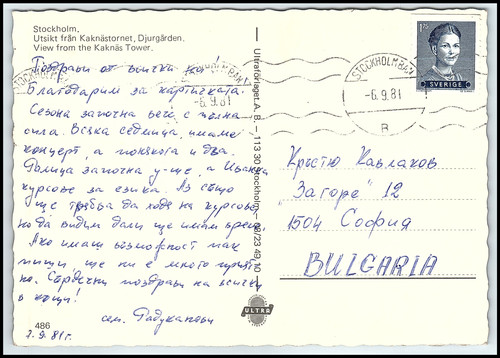 Stockholm,
Utsikt från Kaknästornet, Djurgården.
View from the Kaknäs Tower.
Поздрави от всички ни!
Благодарим за картичката.
Сезона започна вече с пълна
сила. Всяка седмица имаме
концерт, а понякога и два.
започна у-ще, а Иванка
курсове за езика. Аз също
ще трябва да ходя на курсове,
но да видим дали ще имам време.
Ако имаш възможност пак
пиши ще ни е много прият-
но. Сърдечни поздрави на всички
в къщи!
сем. Радуканови
486
2.9.81г.
Ultraförlaget A.B. – 113 30 Stockholm – 08/23 49 10
ULTRA
STOCKHOLM BAN
-6.9.81
STOCKHOLM BAN
-6.9.81
B
SVERIGE
Кръстю Кавлаков
"Загоре" 12
1504 София
BULGARIA